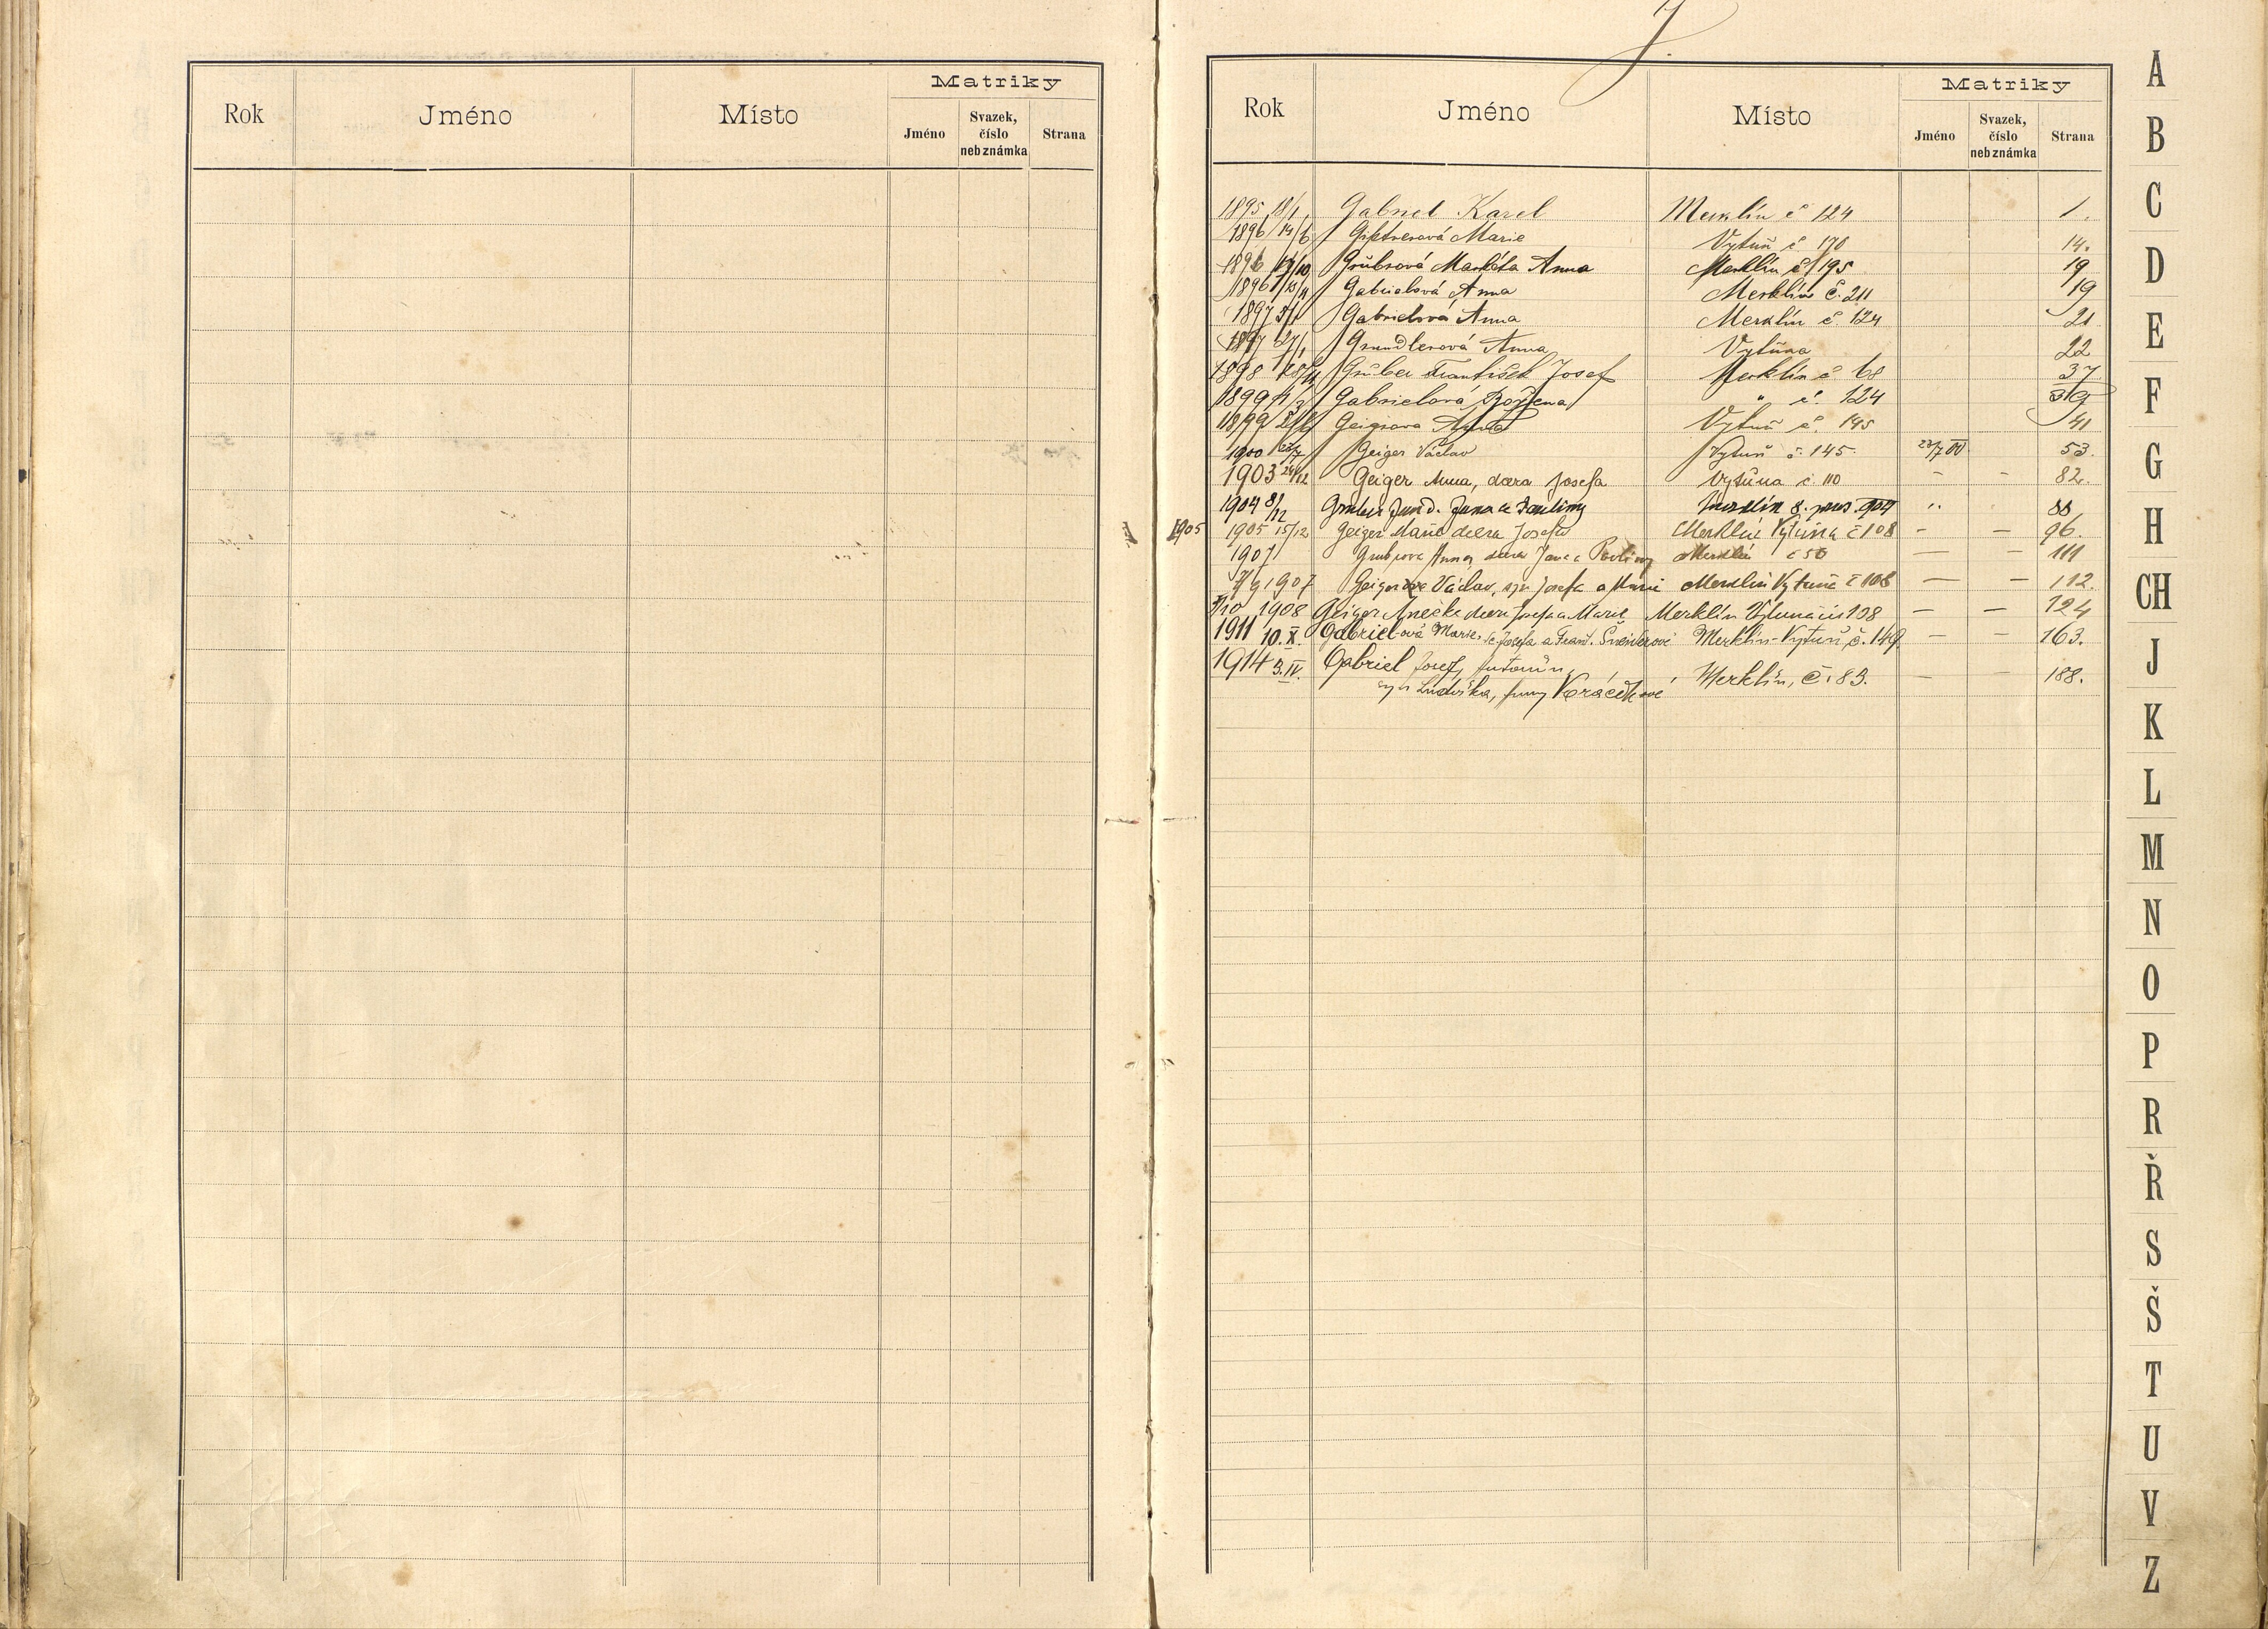 Rok Jméno Místo Matriky
Jméno Svazek, číslo neb známka Strana
G.
Rok Jméno Místo Matriky
Jméno Svazek, číslo neb známka Strana
1895 18/1 Gabriel Karel Merklín č 124 1.
1896 14/6 Marie Vytuň č 170 14.
1896 Grübrová Markéta Anna Merklín č 195 19
1896 Gabrielová Anna Merklín č. 211 19
1897 5/1 Gabrielová Anna Merklín č. 124 21
1897 27/1 Grundlerová Anna Vytůna 22
1898 Grüber František Josef Merklín č 68 37
1899 Gabrielová Božena " č. 124 39
1899 Geigrova Anna Vytuň č. 145 41
1900 22/7 Geiger Václav Vytuň č. 145 22/7 00 53.
1903 24/12 Geiger Anna, dcera Josefa Vytůna č. 110 - - 82.
1904 8/12 Gruber Jana a Pauliny Merklín 8. pros. 904 " 88
1905 1905 15/12 Geiger Marie dcera Josefa Merklín Vytůna č 108 - - 96.
1907 Grubrova Anna, dcera Jana a Pavliny Merklín č 50 — — 111
7/9 1907 Geiger Václav, syn Josefa a Marie Merklín Vytuně č 108 — — 112.
3/10 1908 Geiger Anežka dcera Josefa a Marie Merklín Vytuna čís 108 — — 124
1911 10.X. Gabriel-ová Marie, Josefa a Frant. Šneiderové Merklín-Vytuň, č. 149. - - 163.
1914 3.IV. Gabriel Josef, Antonín,
syn Ludvíka, Koráčíkové Merklín, č. 83. - - 188.
A
B
C
D
E
F
G
H
CH
J
K
L
M
N
O
P
R
Ř
S
Š
T
U
V
Z